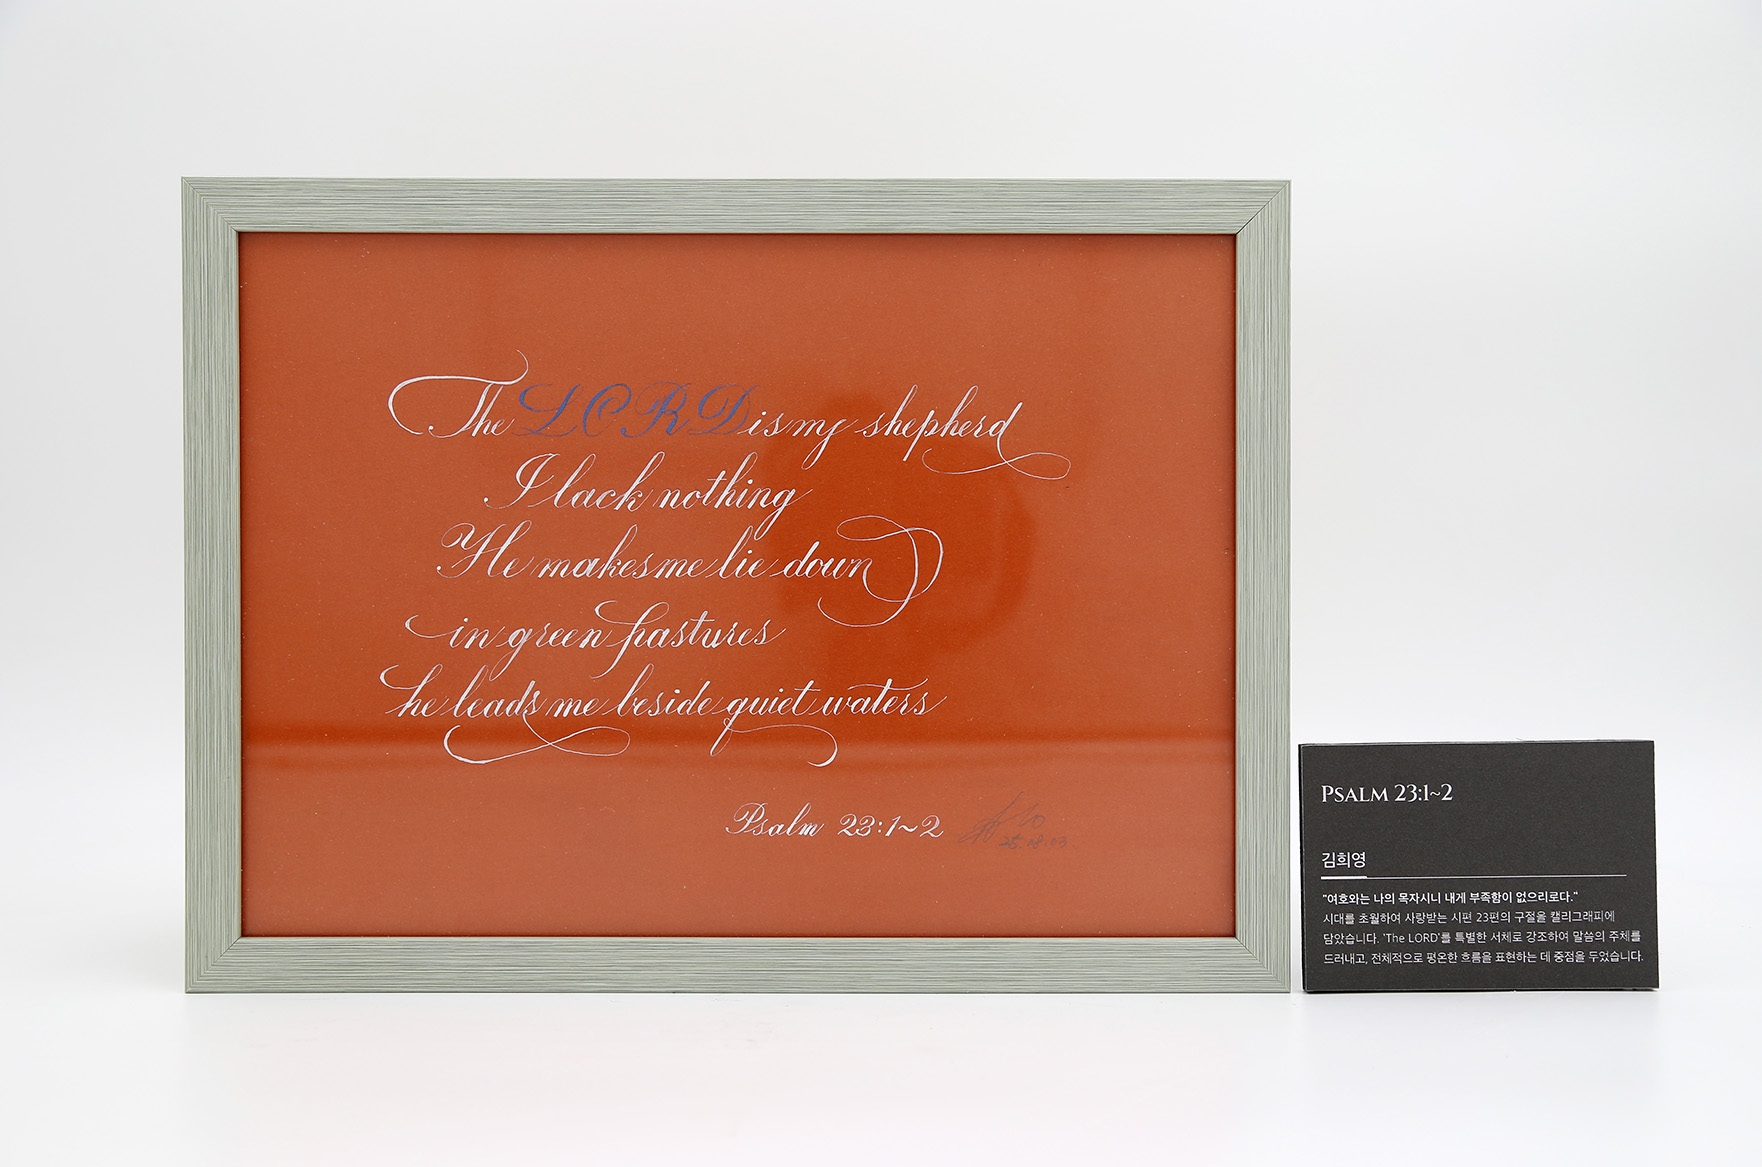 The LORD is my shepherd
I lack nothing
He makes me lie down
in green pastures
he leads me beside quiet waters
Psalm 23:1~2
25.08.03
PSALM 23:1~2
김희영
"여호와는 나의 목자시니 내게 부족함이 없으리로다."
시대를 초월하여 사랑받는 시편 23편의 구절을 캘리그래피에
담았습니다. 'The LORD'를 특별한 서체로 강조하여 말씀의 주체를
드러내고, 전체적으로 평온한 흐름을 표현하는 데 중점을 두었습니다.